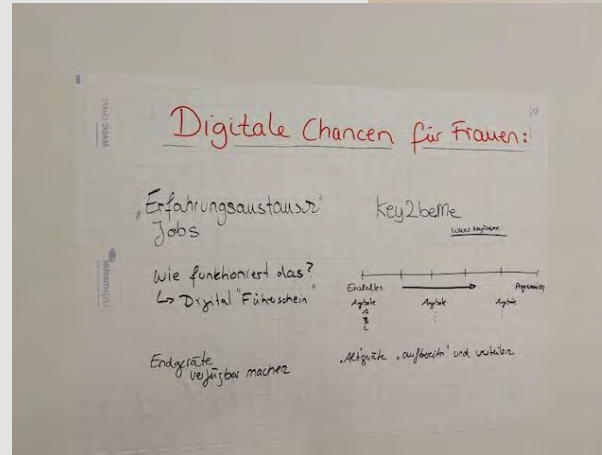 Digitale Chancen für Frauen:
„Erfahrungsaustausch“
Jobs
Wie funktioniert das?
↳ Digital "Führschein"
Endgeräte
verfügbar machen
key2beMe
www.key2beme
Einschalten
Angebote
A
B
C
Angebote
Angebote
Altgeräte „aufbereiten“ und verteilen